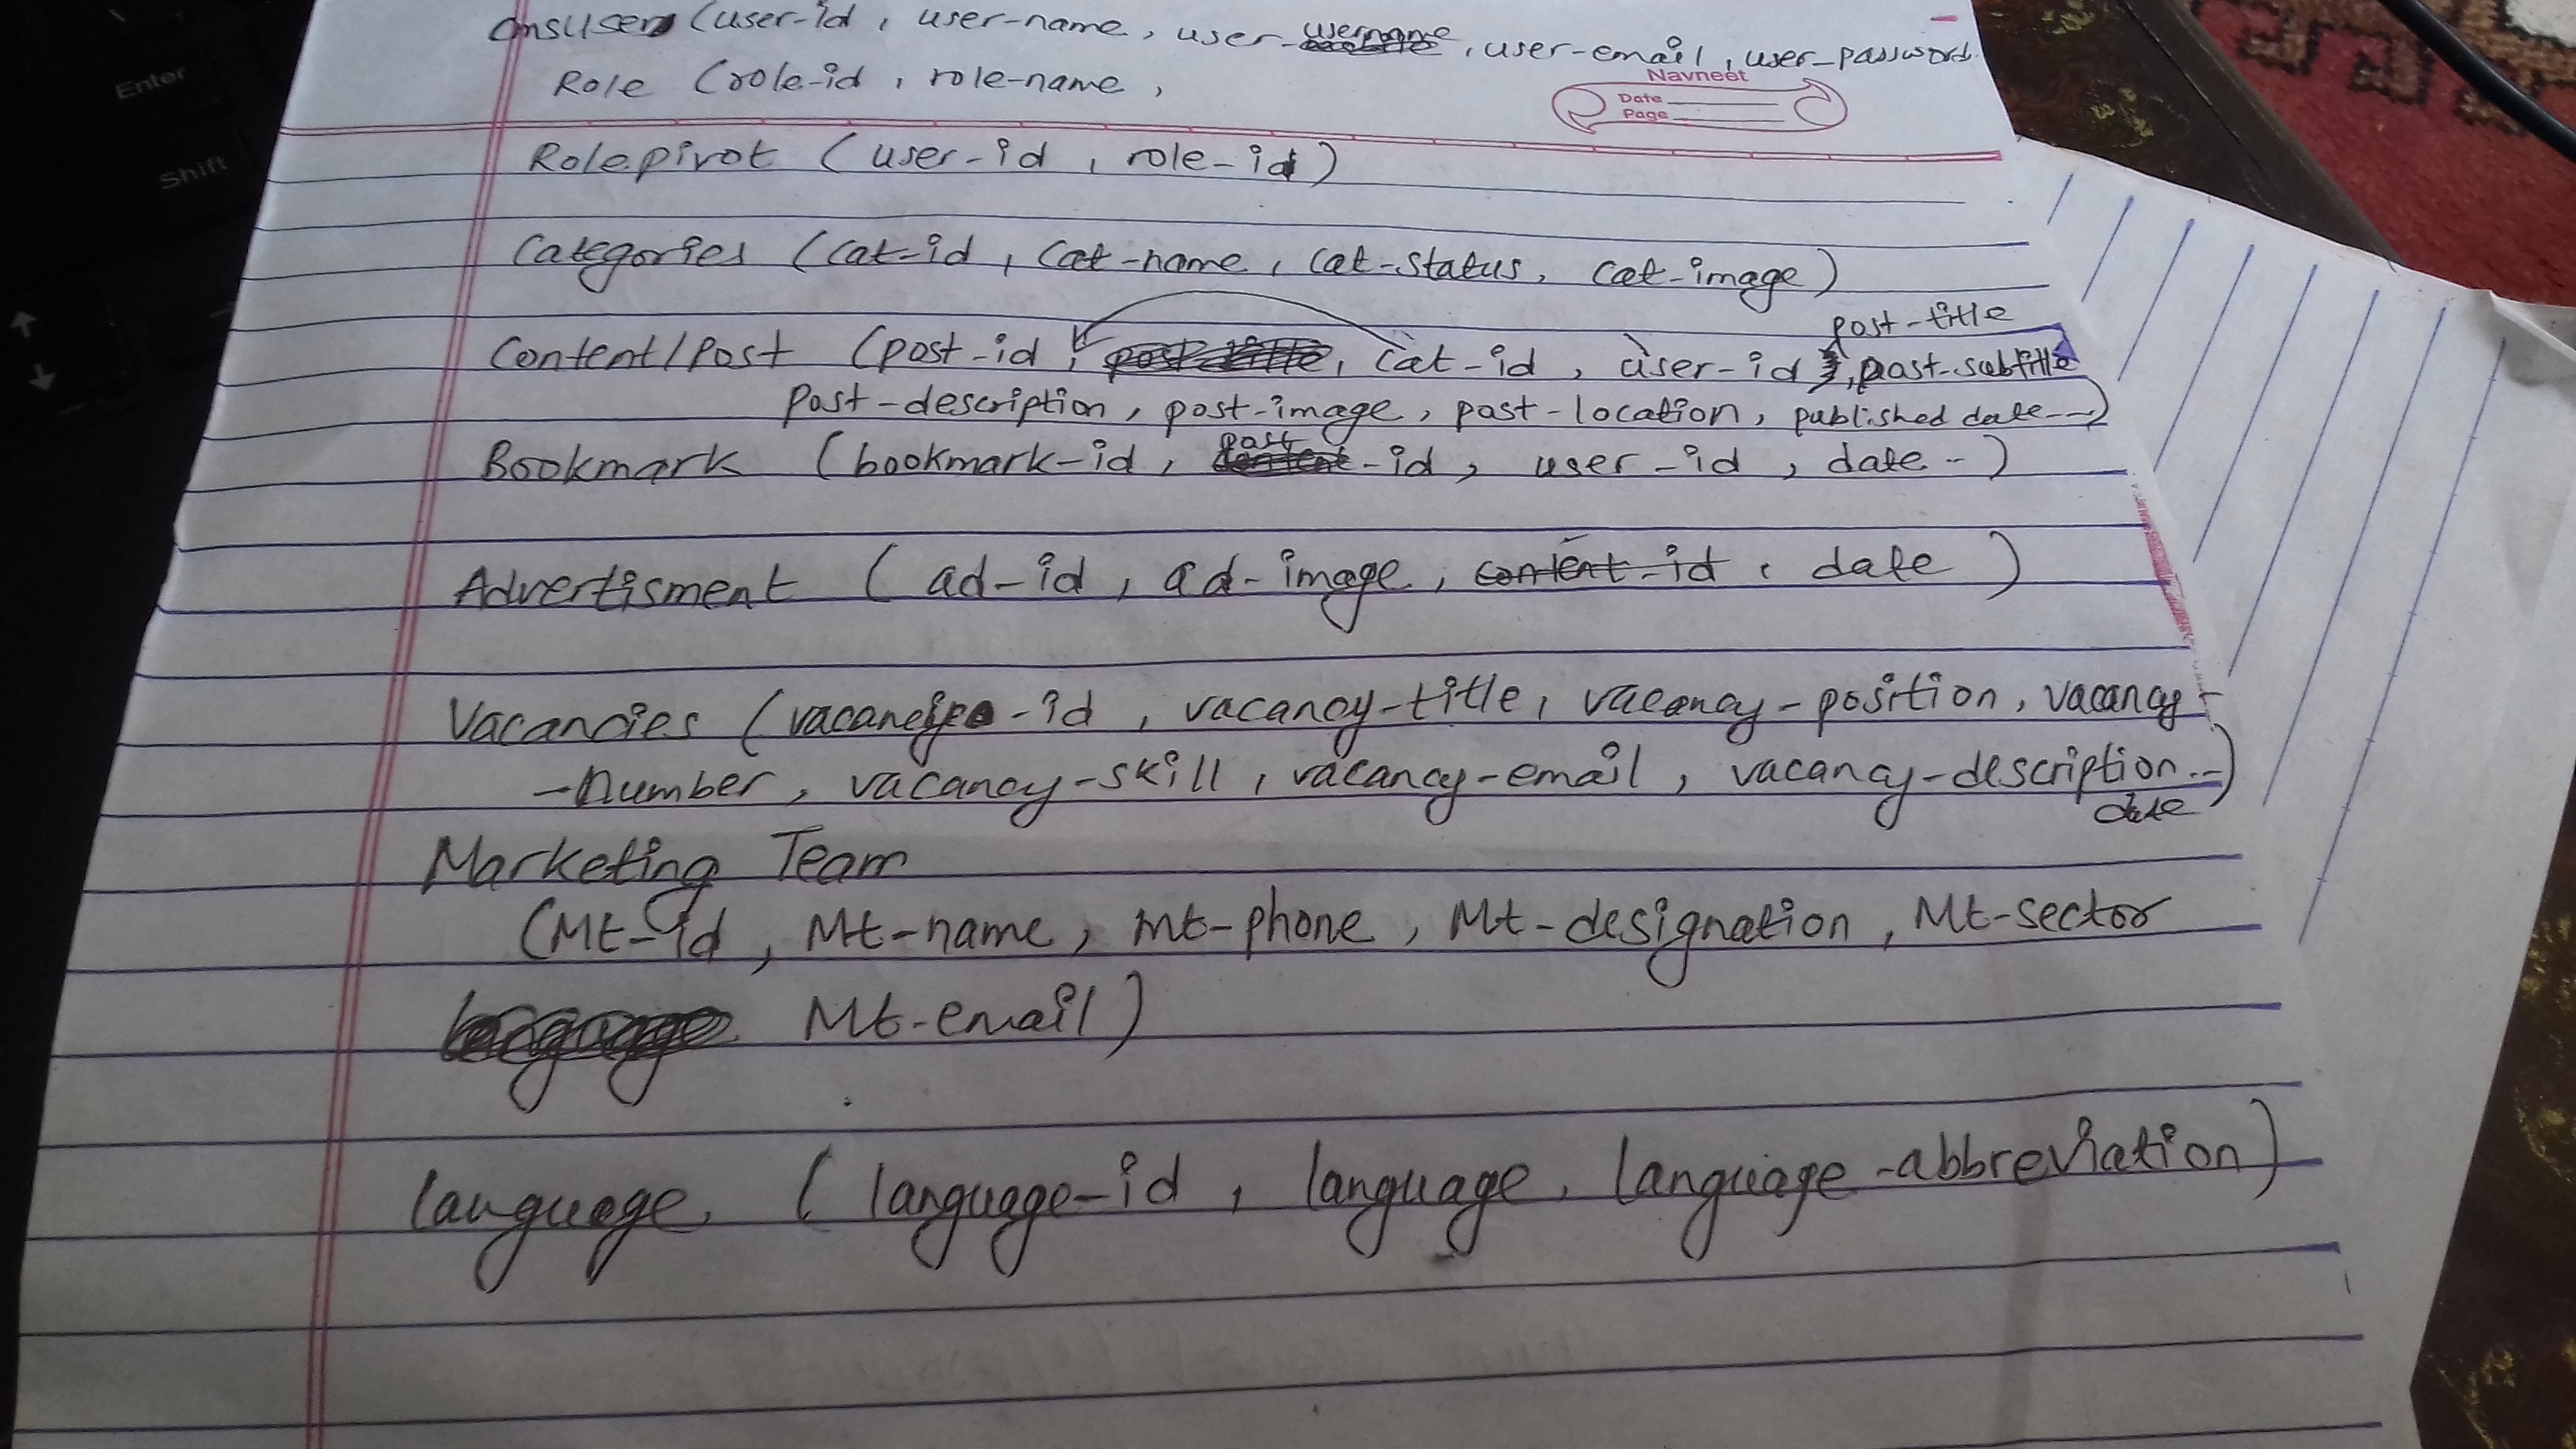 cmsUser (user-id, user-name, user-username, user-email, user-password.
Role (role-id, role-name,
Navneet
Date
Page
Rolepivot (user-id, role-id)
Categories (cat-id, cat-name, cat-status, cat-image)
post-title
Content/Post (post-id, post-title, cat-id, user-id, post-subtitle
Post-description, post-image, post-location, published date--)
Bookmark (bookmark-id, post-id, user-id, date--)
Advertisment (ad-id, ad-image, content-id, date)
Vacancies (vacancy-id, vacancy-title, vacancy-position, vacancy-
-number, vacancy-skill, vacancy-email, vacancy-description--)
date
Marketing Team
(Mt-id, Mt-name, mt-phone, Mt-designation, Mt-sector
language Mt-email)
language. (language-id, language, language-abbreviation)
Enter
Shift